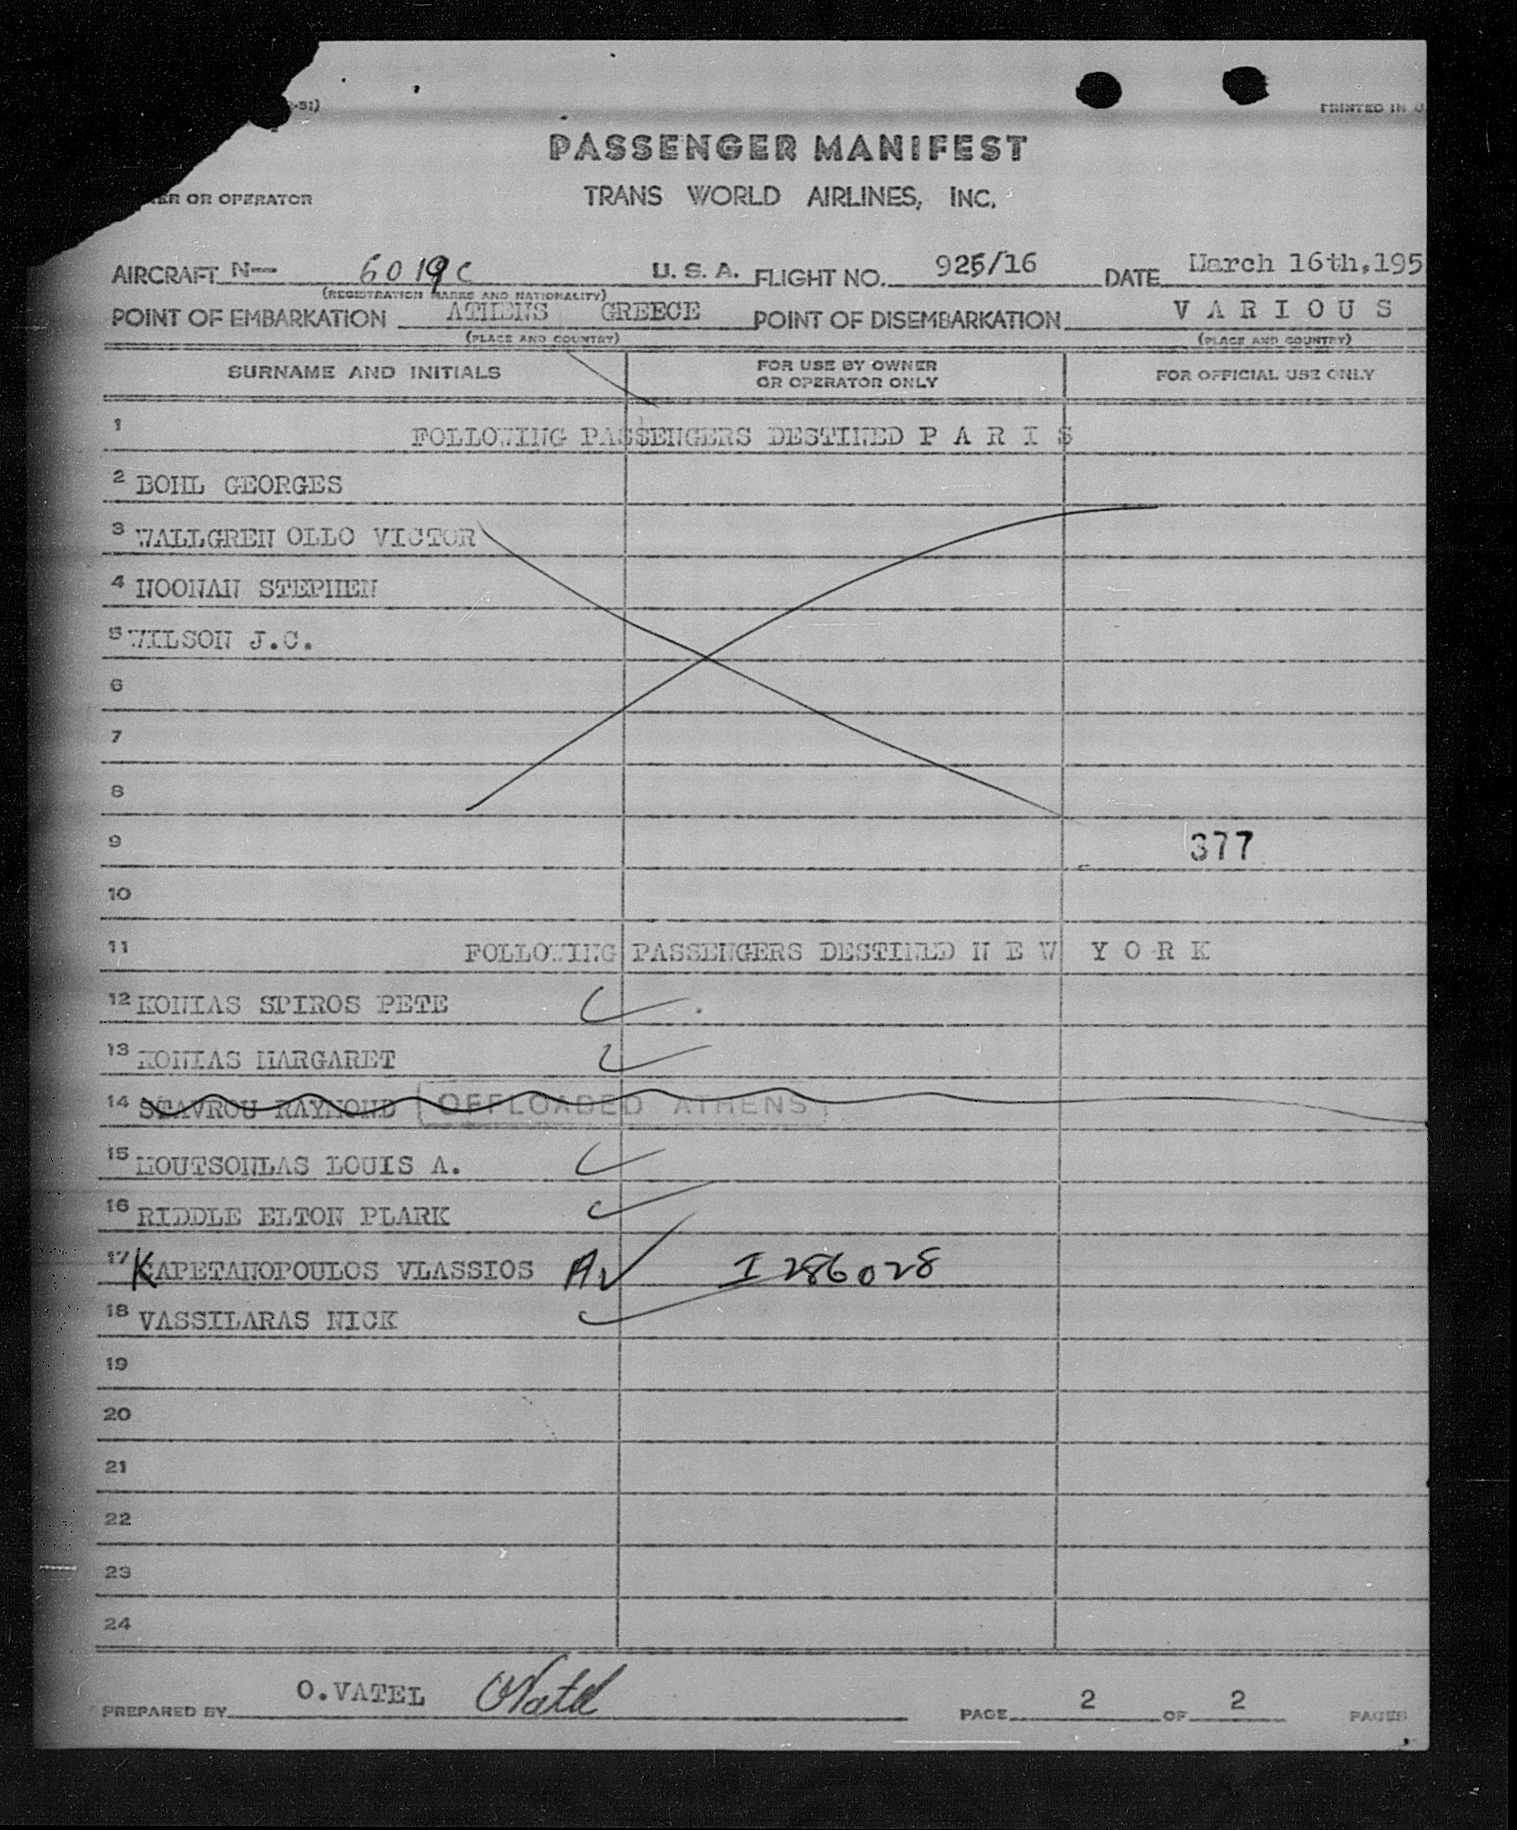 -51)
PRINTED IN U
PASSENGER MANIFEST
OR OPERATOR
TRANS WORLD AIRLINES, INC.
AIRCRAFT N— 6019C U.S.A. FLIGHT NO. 925/16 DATE March 16th,195
(REGISTRATION MARKS AND NATIONALITY)
POINT OF EMBARKATION ATHENS GREECE POINT OF DISEMBARKATION V A R I O U S
(PLACE AND COUNTRY) (PLACE AND COUNTRY)
SURNAME AND INITIALS FOR USE BY OWNER OR OPERATOR ONLY FOR OFFICIAL USE ONLY
1 FOLLOWING PASSENGERS DESTINED P A R I S
2 BOHL GEORGES
3 WALLGREN OLLO VICTOR
4 NOONAN STEPHEN
5 WILSON J.C.
6
7
8
9 377
10
11 FOLLOWING PASSENGERS DESTINED N E W Y O R K
12 KONIAS SPIROS PETE
13 KONIAS MARGARET
14 STAVROU RAYMOND OFFLOADED ATHENS
15 MOUTSOULAS LOUIS A.
16 RIDDLE ELTON PLARK
17 KAPETANOPOULOS VLASSIOS A I 286028
18 VASSILARAS NICK
19
20
21
22
23
24
PREPARED BY O.VATEL OVatel PAGE 2 OF 2 PAGES